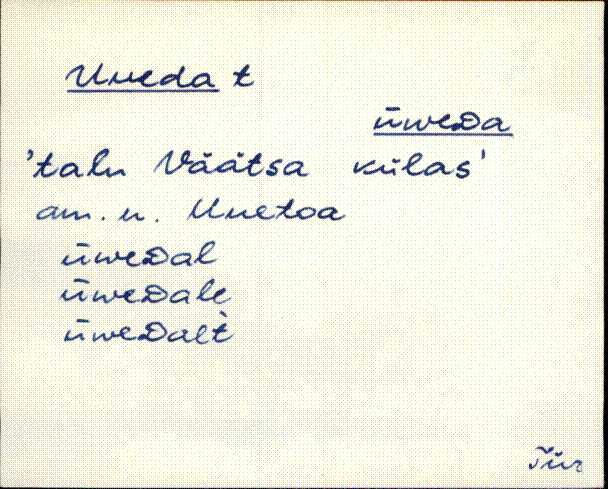 Uueda t
ūweDa
'talu Väätsa külas'
am. n. Uuetoa
ūweDal
ūweDale
ūweDalt̀
Tür